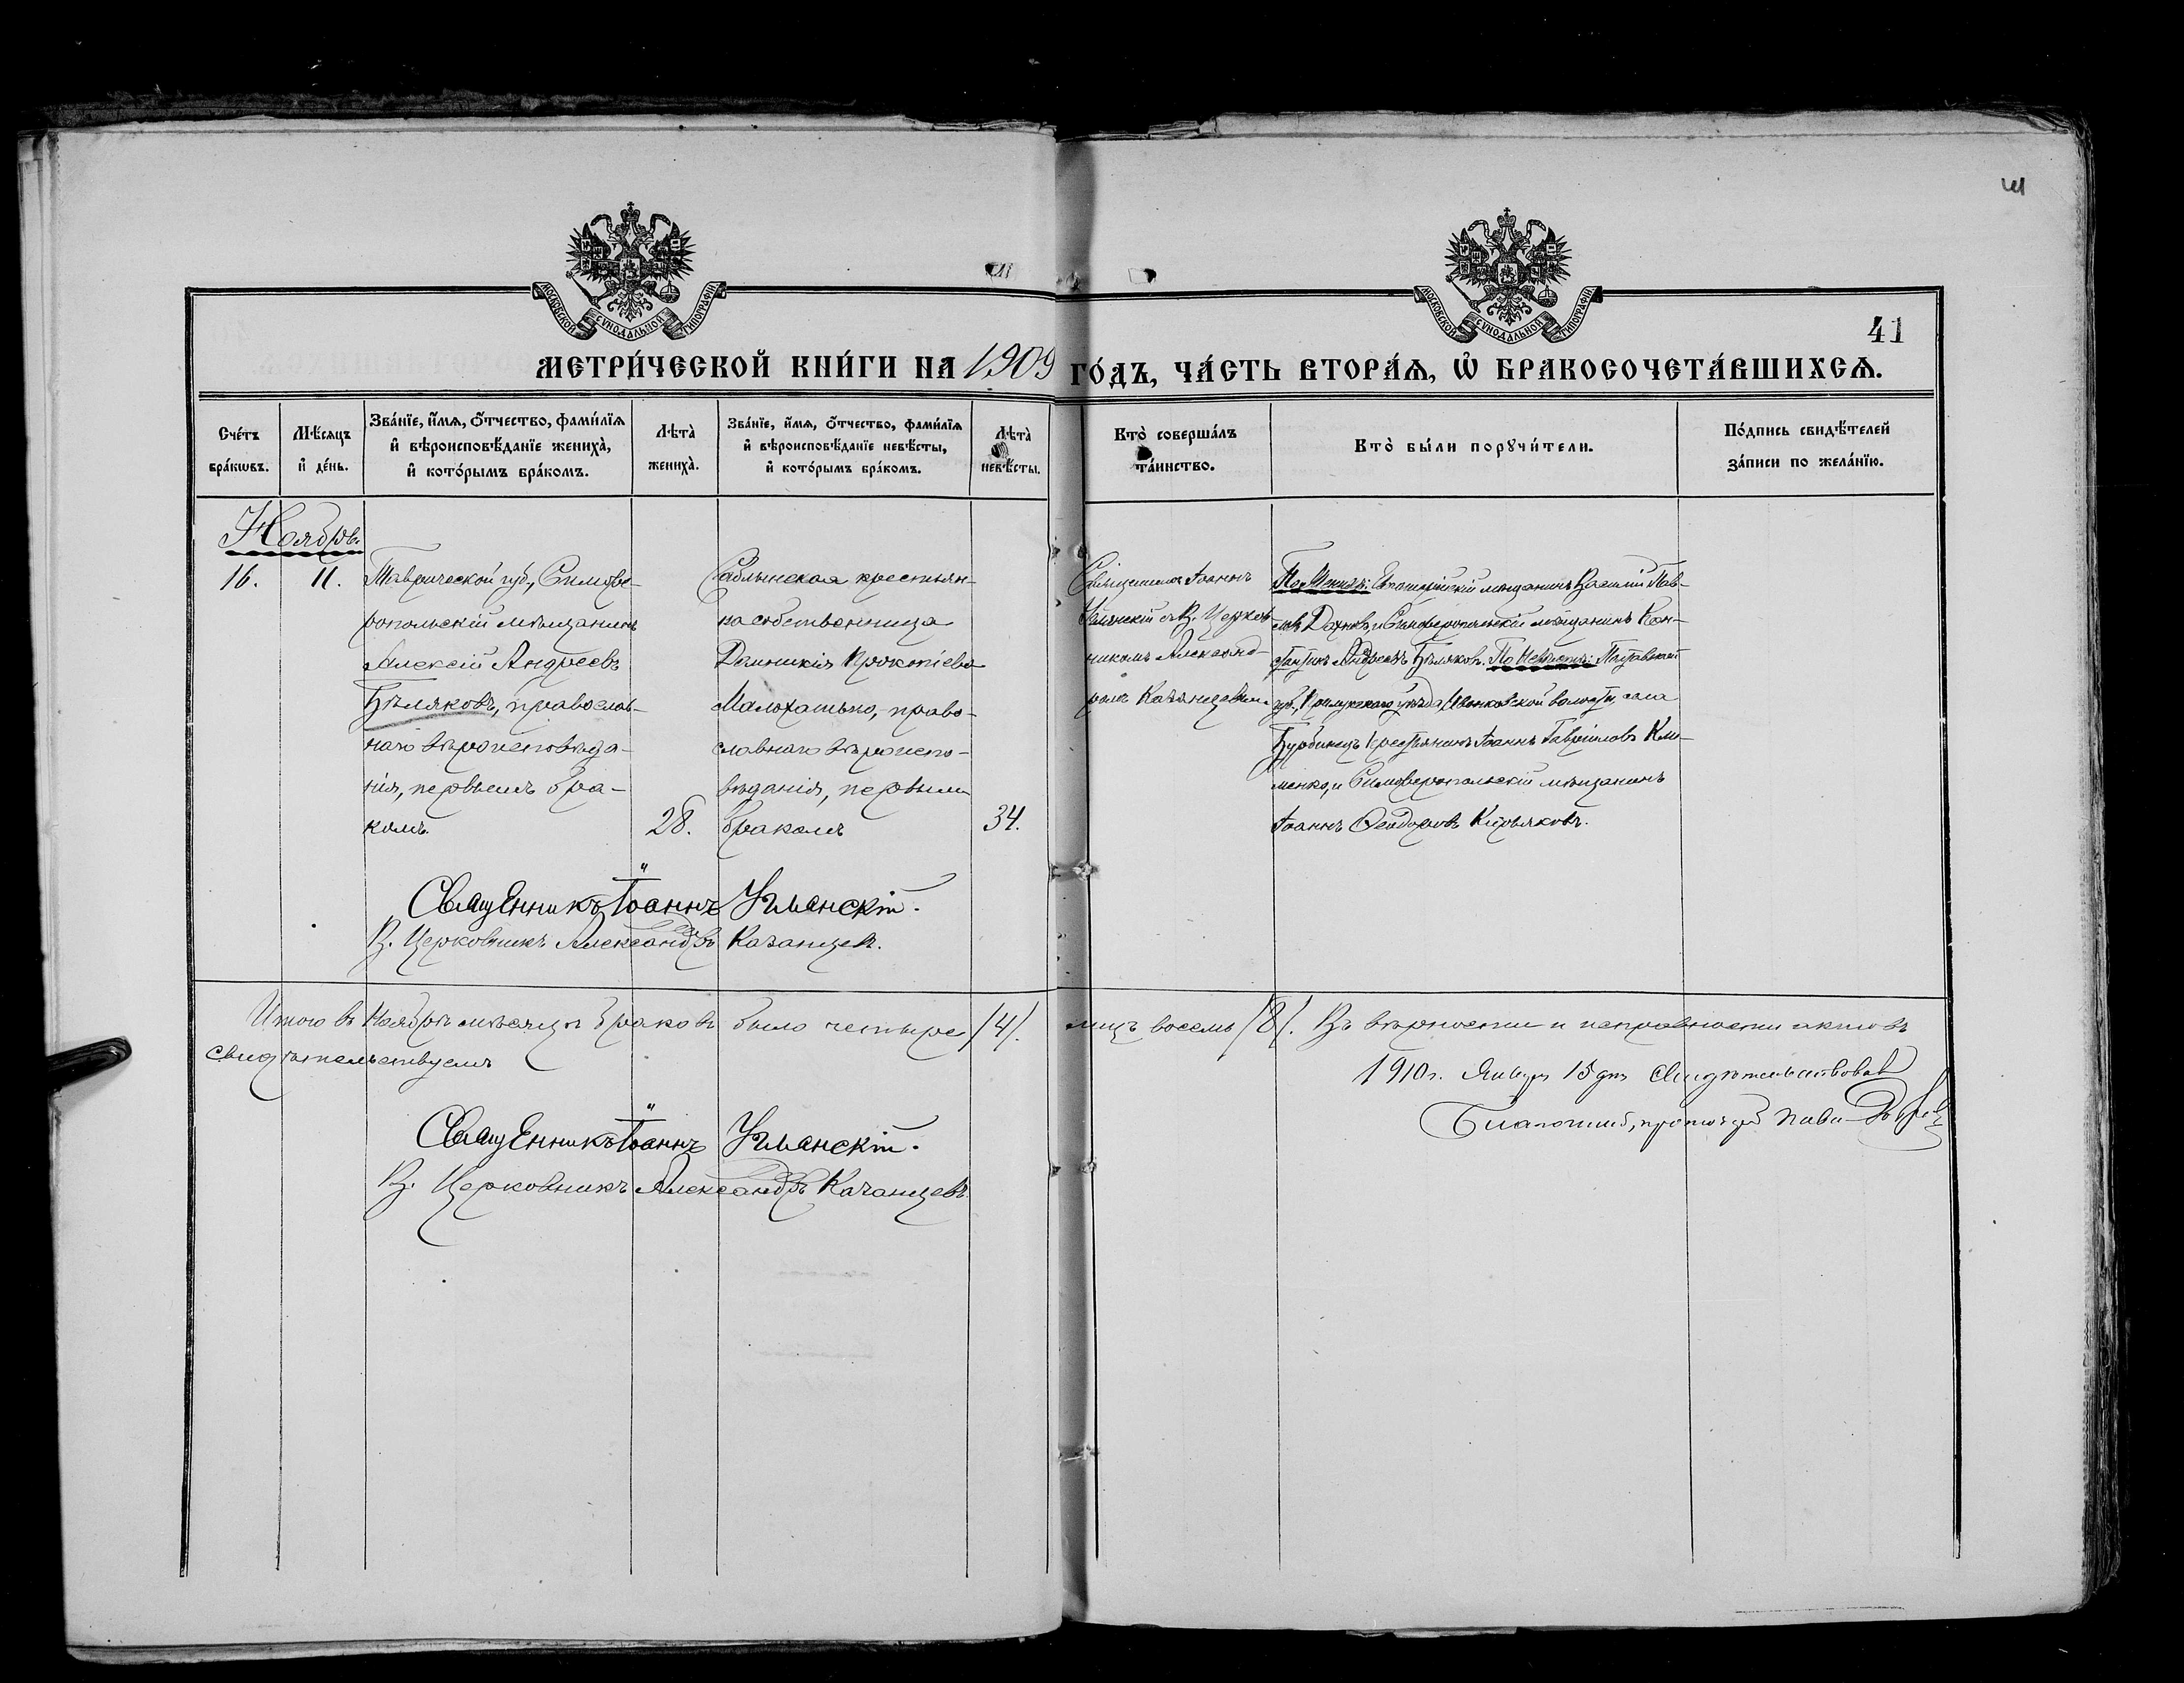 41
МОСКОВСКОЙ СѴНОДАЛЬНОЙ ТИПОГРАФІИ
МОСКОВСКОЙ СѴНОДАЛЬНОЙ ТИПОГРАФІИ
41
МЕТРИ́ЧЕСКОЙ КНИ́ГИ НА 1909 ГО́ДЪ, ЧА́СТЬ ВТОРА́Ѧ, Ѡ҆ БРАКОСОЧЕТА́ВШИХСѦ.
Сче́тъ
бра́кѡвъ.
Мѣ́сяцъ
и҆ де́нь.
Зва́нїе, и҆́мѧ, ѻ҆́тчество, фами́лїѧ
и҆ вѣроисповѣ́данїе жениха̀,
и҆ кото́рымъ бра́комъ.
Лѣта̀
жениха̀.
Зва́нїе, и҆́мѧ, ѻ҆́тчество, фами́лїѧ
и҆ вѣроисповѣ́данїе невѣ́сты,
и҆ кото́рымъ бра́комъ.
Лѣта̀
невѣ́сты.
Кто̀ соверша́лъ
та́инство.
Кто̀ бы́ли порꙋчи́тели.
По́дпись свидѣ́телей
за́писи по жела́нїю.
Ноябрь.
16.
11.
Таврической губ., Симфе-
ропольскій мѣщанинъ
Алексій Андреевъ
Бѣляковъ, православ-
наго вѣроисповѣда-
нія, первымъ бра-
комъ.
28.
Саблынская крестьян-
ка собственница
Домникія Прокопіева
Малохатько, право-
славнаго вѣроиспо-
вѣданія, первымъ
бракомъ
34.
Священникъ Іоаннъ
Уманскій съ В. Церков-
никомъ Александ-
ромъ Казанцевымъ.
По Женихѣ: Евпаторійскій мѣщанинъ Василій Пав-
ловъ Дахновъ, и Симферопольскій мѣщанинъ Кон-
стантинъ Андреевъ Бѣляковъ. По Невѣстѣ: Полтавской
губ., Прилукскаго уѣзда, Иваньковской волости, села
крестьянинъ Іоаннъ Гавріиловъ Кли-
менко, и Симферопольскій мѣщанинъ
Іоаннъ Ѳеодоровъ Кирьяковъ.
Священникъ Іоаннъ Уманскій.
В. Церковникъ Александръ Казанцевъ.
Итого въ Ноябрѣ мѣсяцѣ браковъ было четыре /4/. лицъ восемь /8/. Въ вѣрности и исправности актовъ
свидѣтельствуемъ
Священникъ Іоаннъ Уманскій.
В. Церковникъ Александръ Казанцевъ.
1910 г. Января 15 дня свидѣтельствовалъ
Благочинный, протоіерей